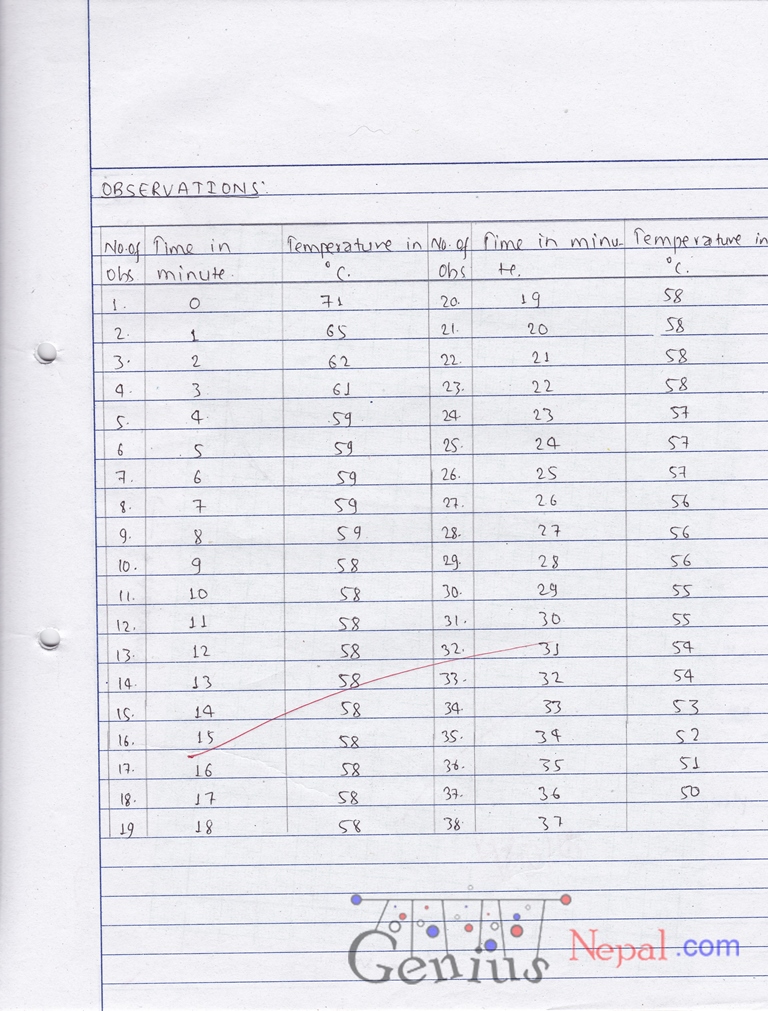 OBSERVATIONS:
No. of Obs Time in minute. Temperature in °C. No. of Obs Time in minu-te. Temperature in °C.
1. 0 71 20. 19 58
2. 1 65 21. 20 58
3. 2 62 22. 21 58
4. 3 61 23. 22 58
5. 4 59 24. 23 57
6 5 59 25. 24 57
7. 6 59 26. 25 57
8. 7 59 27. 26 56
9. 8 59 28. 27 56
10. 9 58 29. 28 56
11. 10 58 30. 29 55
12. 11 58 31. 30 55
13. 12 58 32. 31 54
14. 13 58 33. 32 54
15. 14 58 34. 33 53
16. 15 58 35. 34 52
17. 16 58 36. 35 51
18. 17 58 37. 36 50
19 18 58 38. 37
Genius Nepal.com